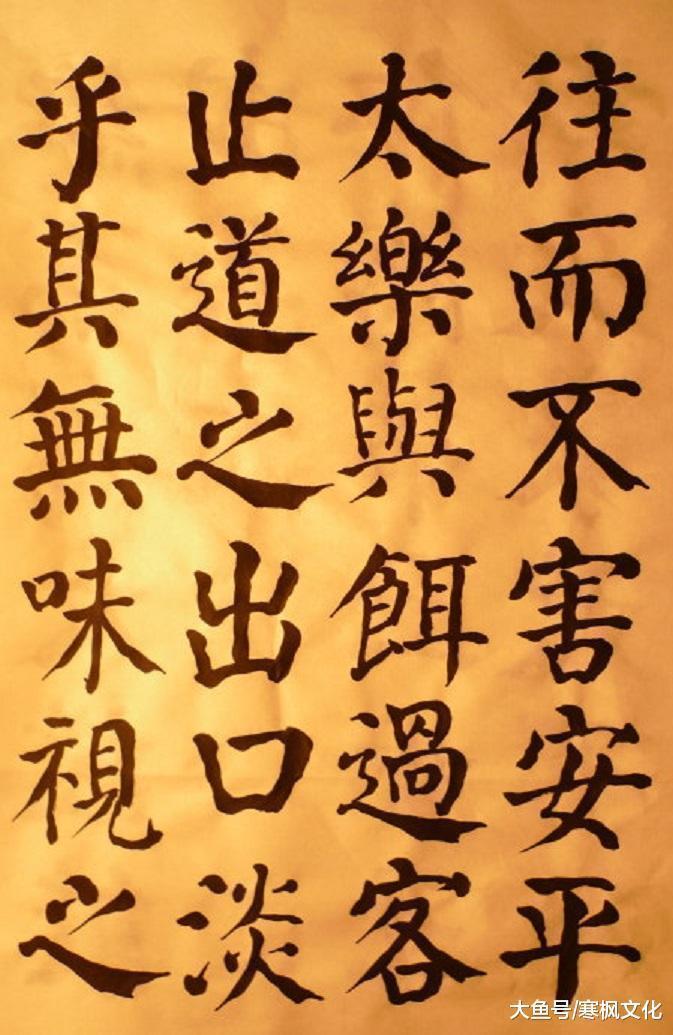 往而不害安平
太樂與餌過客
止道之出口淡
乎其無味視之
大鱼号/寒枫文化